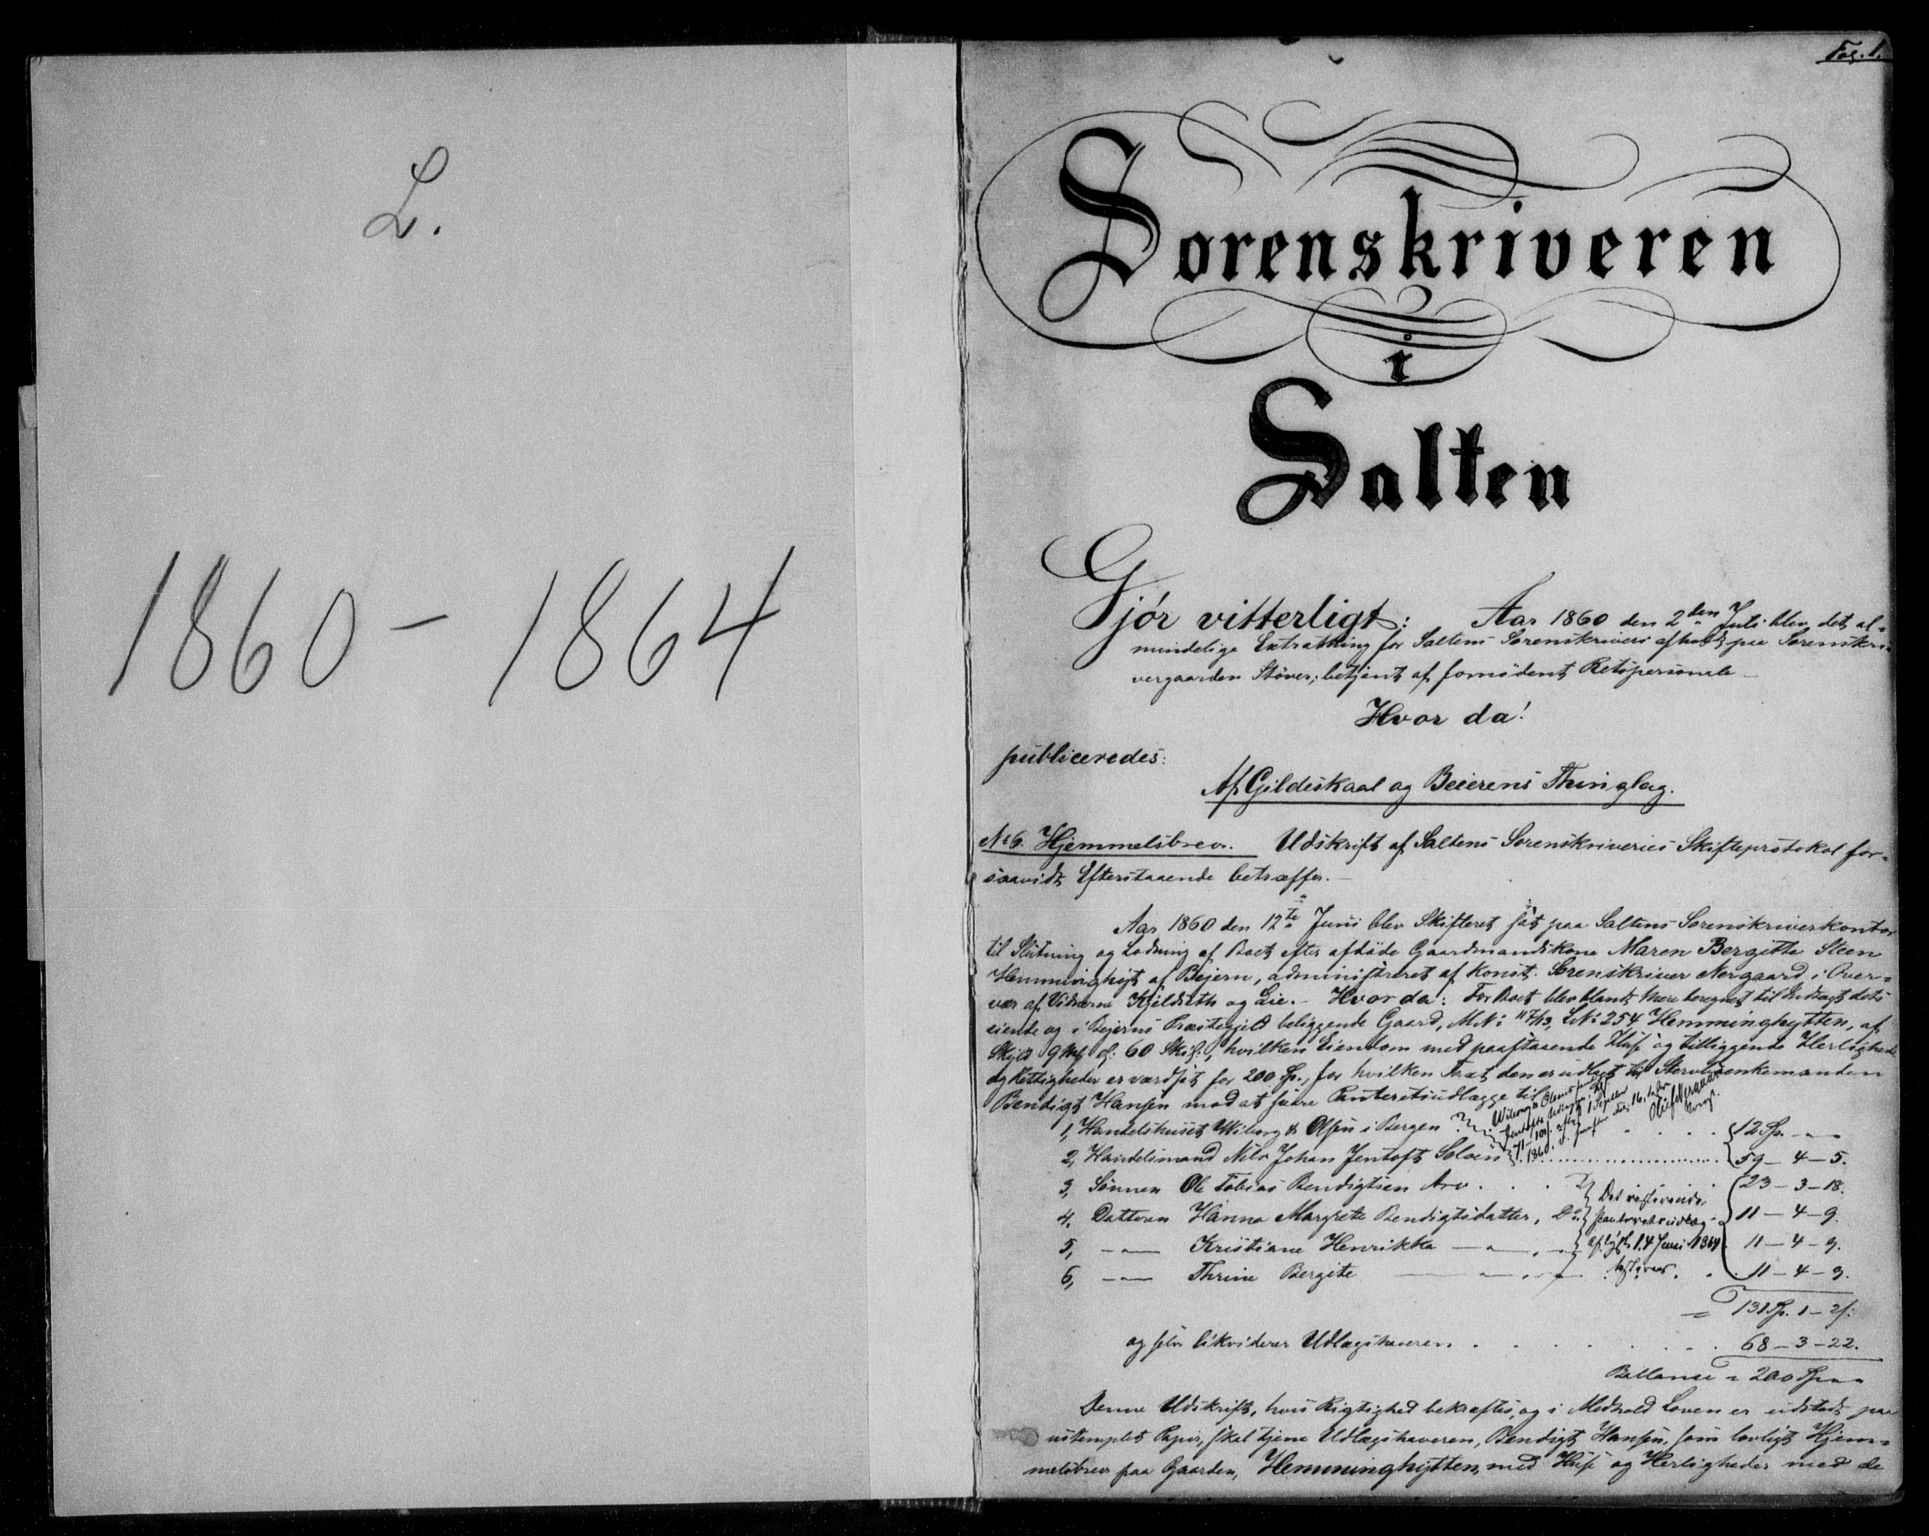 L.
1860 - 1864
Fol. 1.
Sorenskriveren
i
Salten
Gjór vitterligt: Aar 1860 den 2den Juli blev det al-
mindelige Extrathing for Saltens Sorenskriveri afholdt paa Sorenskri-
vergaarden Støver, betjent af fornødent Retspersonale
Hvor da!
publiceredes:
Af Gildeskaal og Beierens Thinglag.
No 6. Hjemmelsbrev. Udskrift af Saltens Sorenskriveries Skifteprotokol for-
saavidt Efterstaaende betræffer.
Aar 1860 den 12te Juni blev Skifteret sat paa Saltens Sorenskriverkontor
til Slutning og Lodning af Boet efter afdøde Gaardmandskone Maren Bergitte Steen
Hemminghyt af Bejern, administreret af Konst. Sorenskriver Nergaard i Over-
vær af Vidnerne Kjeldseth og Lie. - Hvor da: For Boet blev blandt Mere beregnet til Indtægt dets
eiende og i Bejerns Præstegjeld beliggende Gaard, M.No 117/13, L.No 254 Hemminghytten, af
Skyld 9 Mk. of. 60 Skil., hvilken Eiendom med paastaaende Huse og tilliggende Herligheder
og Rettigheder er værdsat for 200 Sp., for hvilken Taxt den er udlagt til Stervboenkemanden
Bendigt Hansen mod at svare Panteretsudlægge til
1, Handelshuset Wiborg & Olsen i Bergen 12 Sp. - "
2, Handelsmand Nils Johan Jentoft Soløen 59 - 4 - 5.
3, Sønnen Ole Tobias Bendigtsen Arv 23 - 3 - 18.
4, Datteren Hanna Margrete Bendigtsdatter, Do 11 - 4 - 9.
5, - " - Kristiane Henrikke - " - 11 - 4 - 9.
6, - " - Thrine Bergite - " - 11 - 4 - 9.
Det resterende
Panteretsudlæg
aflyst 14 Juni 1864
= 131 Sp. 1 - 2 s.
og selv likviderer Udlægshaveren 68 - 3 - 22.
Ballance = 200 Sp. " "
Denne Udskrift, hvis Rigtighed bekræftes, og i Medhold Loven er udstedt paa
ustemplet Papir, skal tjene Udlægshaveren, Bendigt Hansen, som lovligt Hjem-
melsbrev paa Gaarden, Hemminghytten, med Huse og Herligheder med de